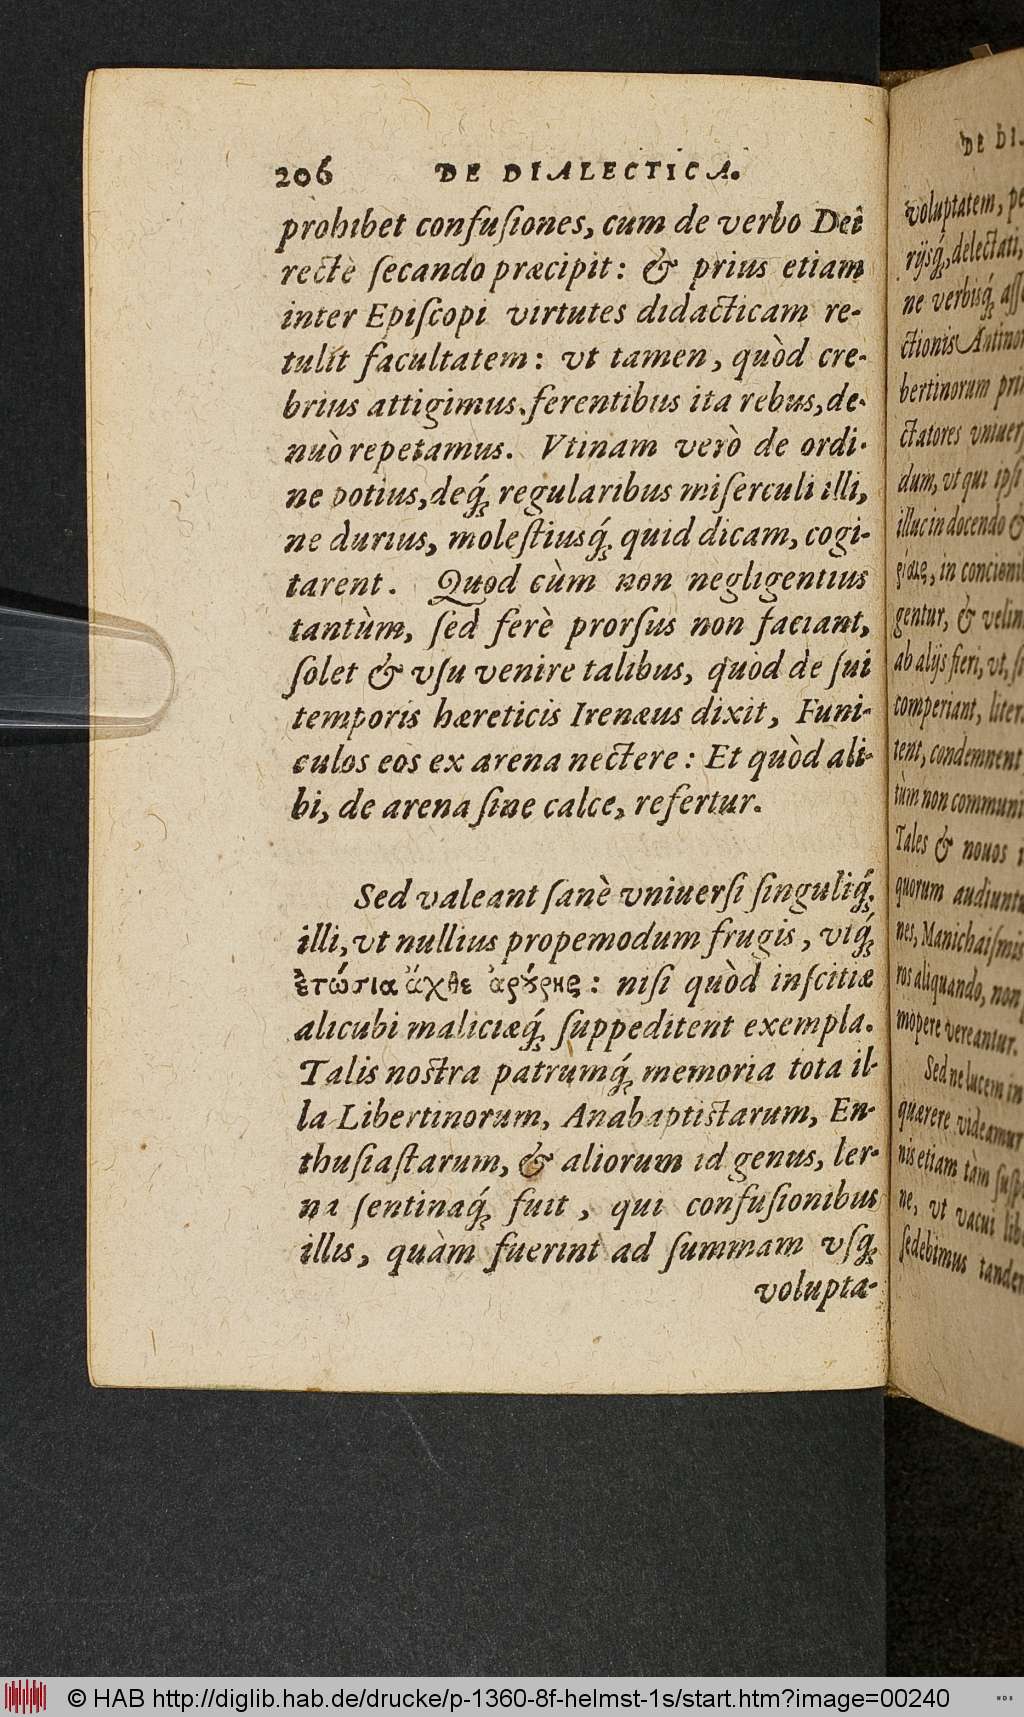 206 DE DIALECTICA.
prohibet confuſiones, cum de verbo Dei
rectè ſecando præcipit: & prius etiam
inter Epiſcopi virtutes didacticam re-
tulit facultatem: vt tamen, quòd cre-
brius attigimus, ferentibus ita rebus, de-
nuò repetamus. Vtinam verò de ordi-
ne potius, deq́; regularibus miſerculi illi,
ne durius, moleſtiusq́; quid dicam, cogi-
tarent. Quod cùm non negligentius
tantùm, ſed ferè prorſus non faciant,
ſolet & vſu venire talibus, quòd de ſui
temporis hæreticis Irenæus dixit, Funi-
culos eos ex arena nectere: Et quòd ali-
bi, de arena ſine calce, refertur.
Sed valeant ſanè vniuerſi ſinguliq́;
illi, vt nullius propemodum frugis, vtq́;
ἐτώσια ἄχθε ἀρούρης: niſi quòd inſcitiæ
alicubi maliciæq́; ſuppeditent exempla.
Talis noſtra patrumq́; memoria tota il-
la Libertinorum, Anabaptiſtarum, En-
thuſiaſtarum, & aliorum id genus, ler-
na ſentinaq́; fuit, qui confuſionibus
illis, quàm fuerint ad ſummam vſq;
volupta-
DE DI
voluptatem, pe
rijsq́;, delectati,
ne verbisq́; aſſe
ctionis Antino
bertinorum pri
ctatores vniuerſ
dum, vt qui ipſi
illuc in docendo &
, in concioni
gentur, & velin
ab alijs fieri, vt, ſi
comperiant, liter
tent, condemnent
tùm non communi
Tales & nouos
quorum audiunt
nes, Manichaiſmis
ros aliquando, non
mopere vereantur.
Sed ne lucem in
quærere videamur
nis etiam tàm ſuſp
ne, vt vacui lib
ſedebimus tanden
© HAB http://diglib.hab.de/drucke/p-1360-8f-helmst-1s/start.htm?image=00240